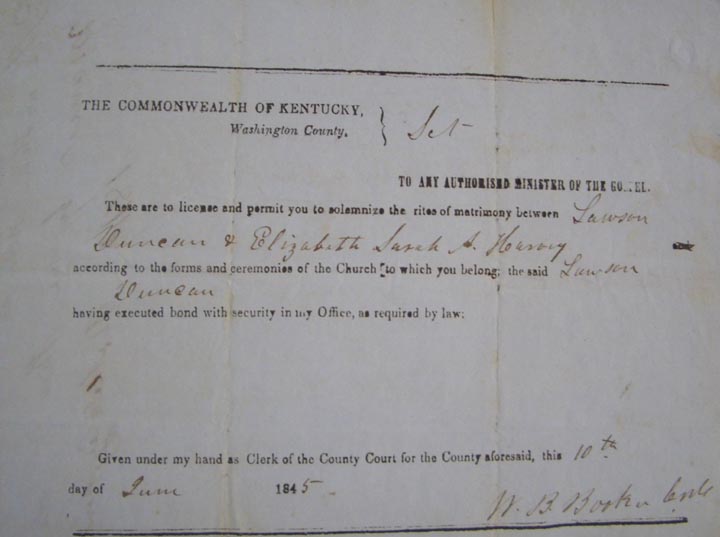 THE COMMONWEALTH OF KENTUCKY,
Washington County. } Sct
TO ANY AUTHORISED MINISTER OF THE GOSPEL.
These are to license and permit you to solemnize the rites of matrimony between Lawson
Duncan & Elizabeth Sarah A. Harvey
according to the forms and ceremonies of the Church to which you belong; the said Lawson
Duncan
having executed bond with security in my Office, as required by law:
Given under my hand as Clerk of the County Court for the County aforesaid, this 10th
day of June 1845.
W. B. Booker